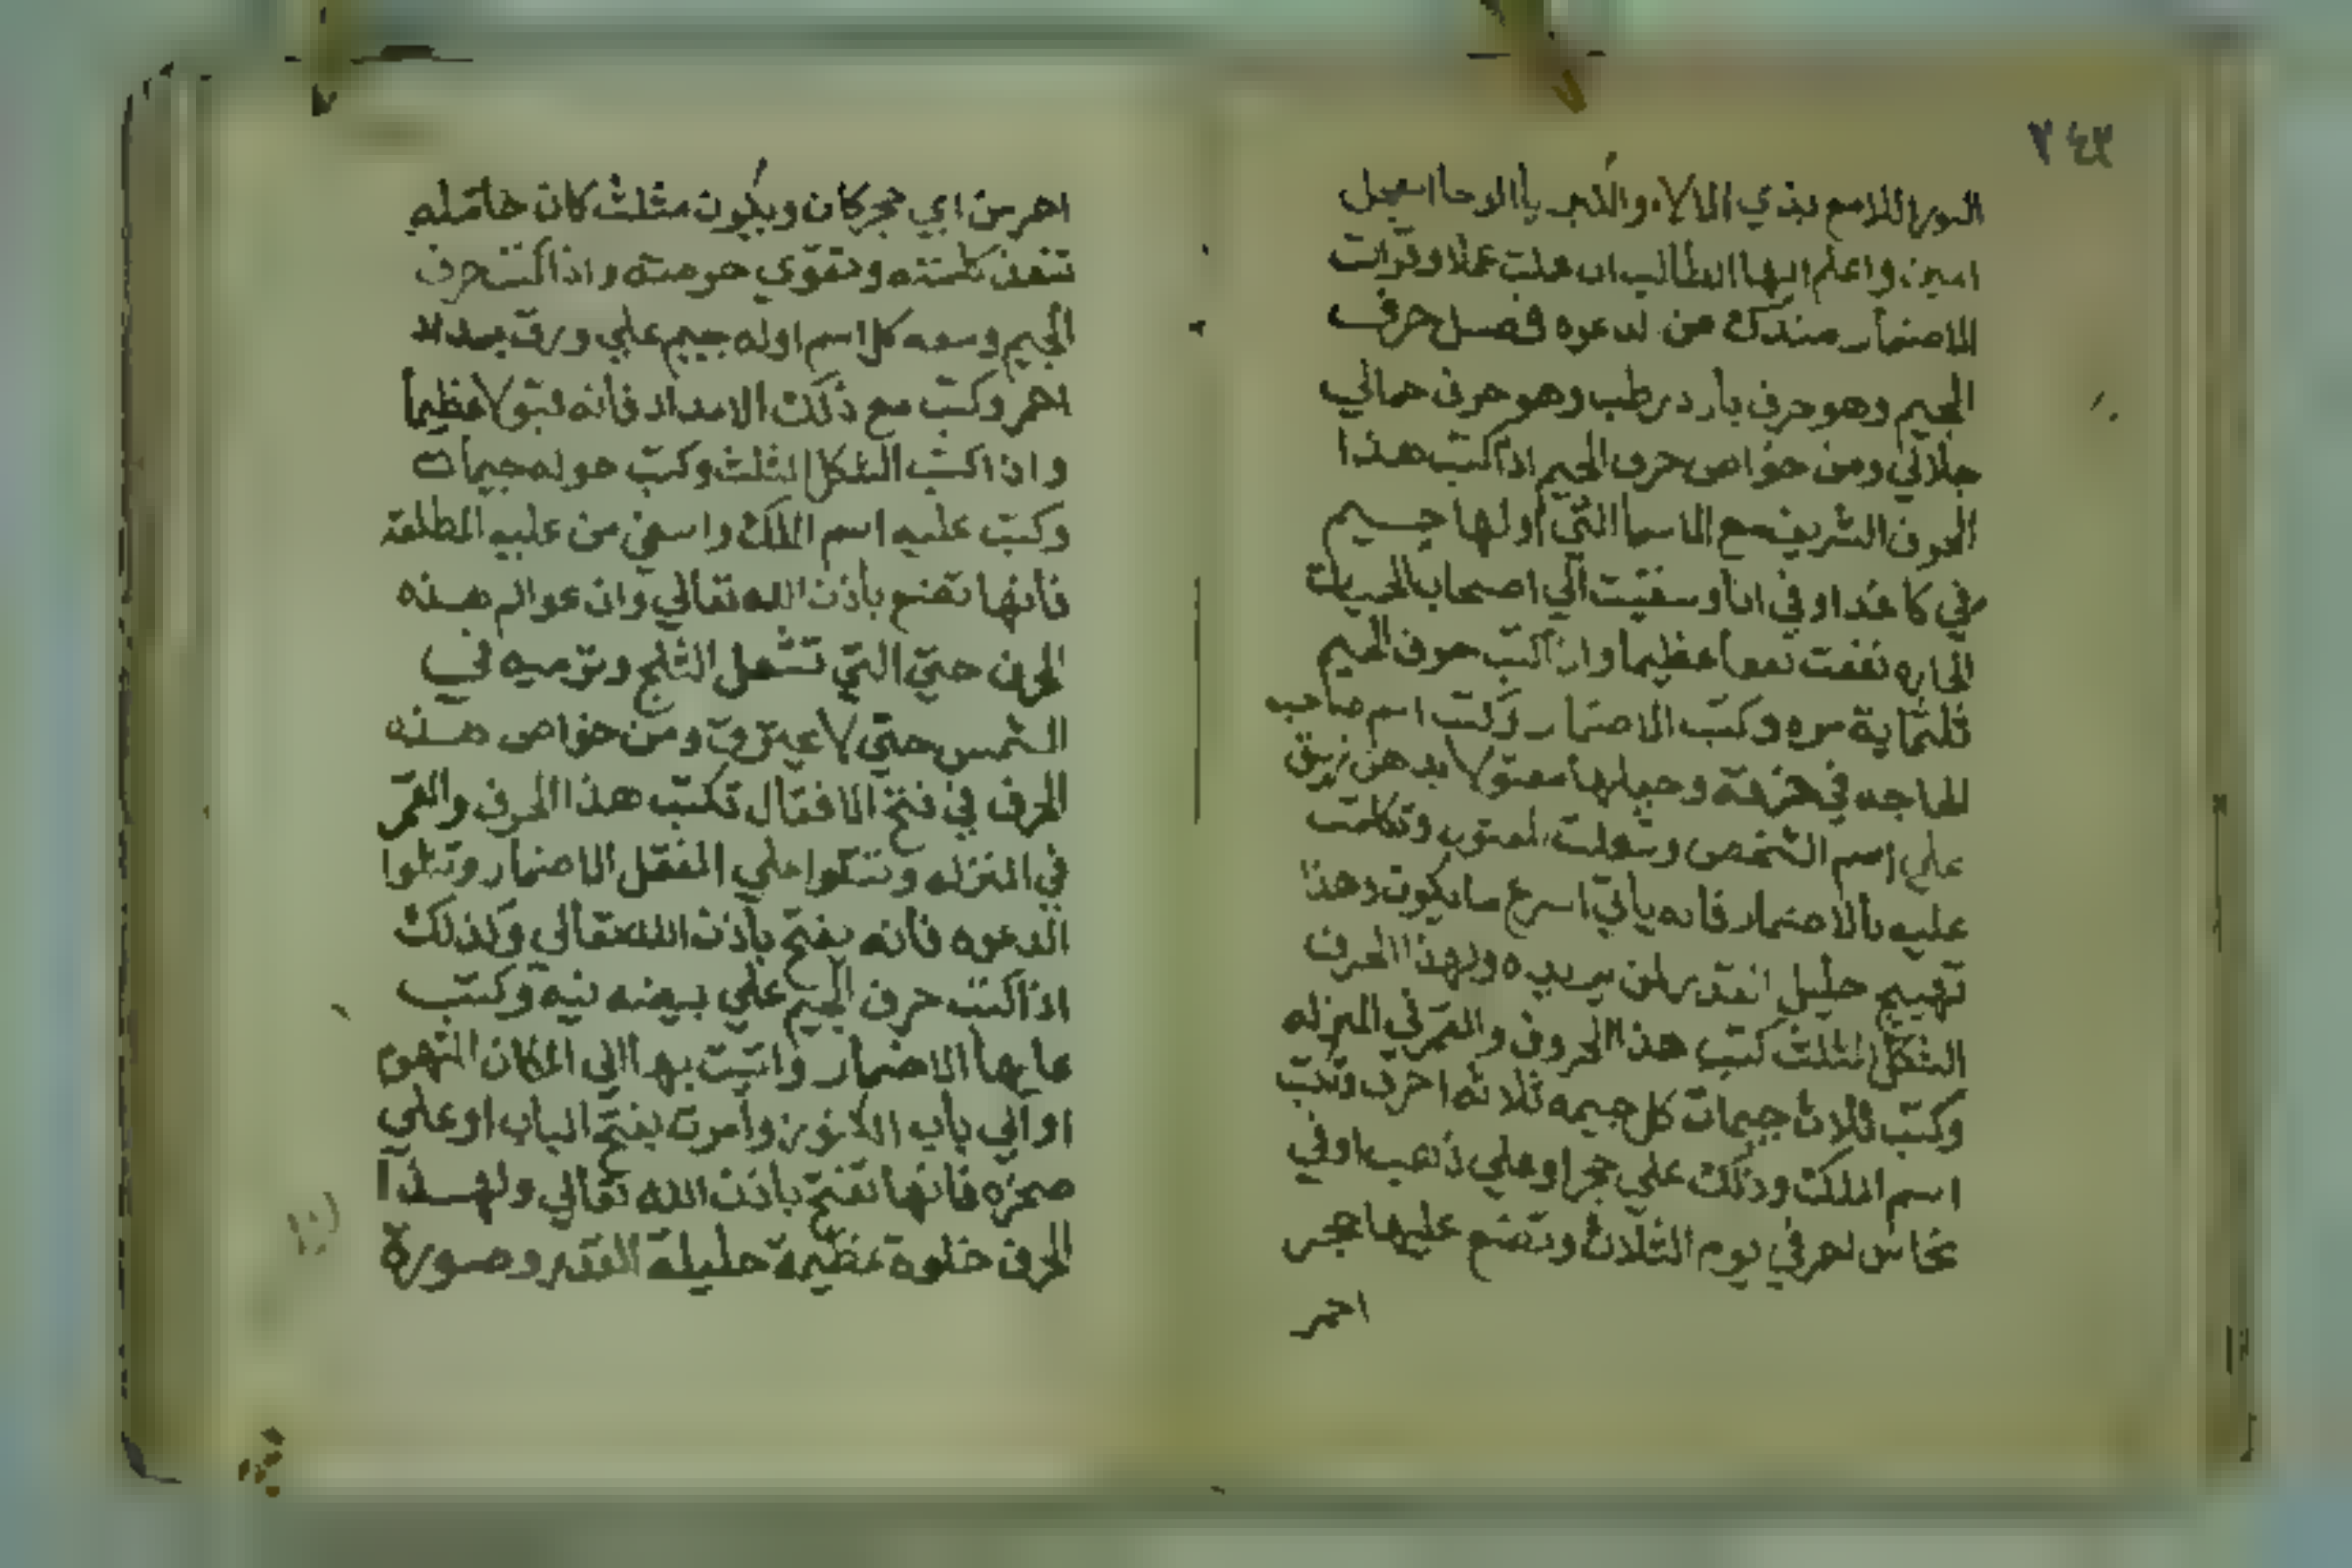 ٢٤٣
امين واعلم ايها الطالب ان عملت عملا وقرات
الاضمار فصل حرف
الجيم وهو حرف بارد رطب وهو حرف جمالي
جلالي ومن خواص حرف الجيم اذا كتب هذا
الحرف الشريف مع الاسما التي اولها جيم
في كاغد او في انا وسقيت الي اصحاب الحميات
الحاره نفعت نفعا عظيما واذا كتبت حرف الجيم
ثلثماية مره وكتبت الاضمار اسم صاحب
الحاجه في خرقة بدهن زيبق
علي اسم الشخص وتكلمت
عليه بالاضمار فانه ياتي اسرع ما يكون وهذا
تهييج جليل لمن يريده ولهذا الحرف
الشكل المثلث كتب هذا الحروف والقمر في المنزله
وكتب ثلاث جيمات كل جيمه ثلاثه احرف وتكتب
اسم الملك وذلك علي حجر او علي ذهب او في
نحاس احمر في يوم الثلاث وتضع عليها حجر
احمر
احمر من اي حجر كان ويكون مثلث كان حامله
تنفذ كلمته وتقوي حرمته واذا كتبت حرف
الجيم ومعه كل اسم اوله جيم علي ورق بمداد
احمر وكتب مع ذلك الاضمار فانه قبولا عظيما
واذا كتب الشكل المثلث وكتب حوله جيمات
وكتب عليه اسم الملك واسقي من عليه المطلقة
فانها تضع باذن الله تعالي وان عوالم هذه
الحرف حتي التي تشعل الثلج وترميه في
الشمس حتي لا ومن خواص هذه
الحرف في فتح الاقفال تكتب هذا الحرف والقمر
في المنزله وتتكلوا علي المقفل الاضمار وتتلوا
الدعوه فانه يفتح باذن الله تعالي وكذلك
اذا كتبت حرف الجيم علي بيضه نيه وكتبت
عليها الاضمار واتيت بها الي المكان المتهوم
او الي باب الكنوز وامرت بفتح الباب او علي
صخره فانها تفتح باذن الله تعالي ولهذا
الحرف خلوة عظيمة جليلة القدر وصورة